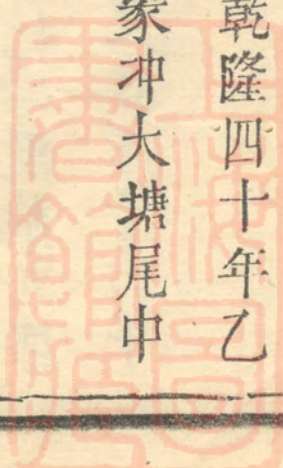 乾隆四十年乙
家冲大塘尾中